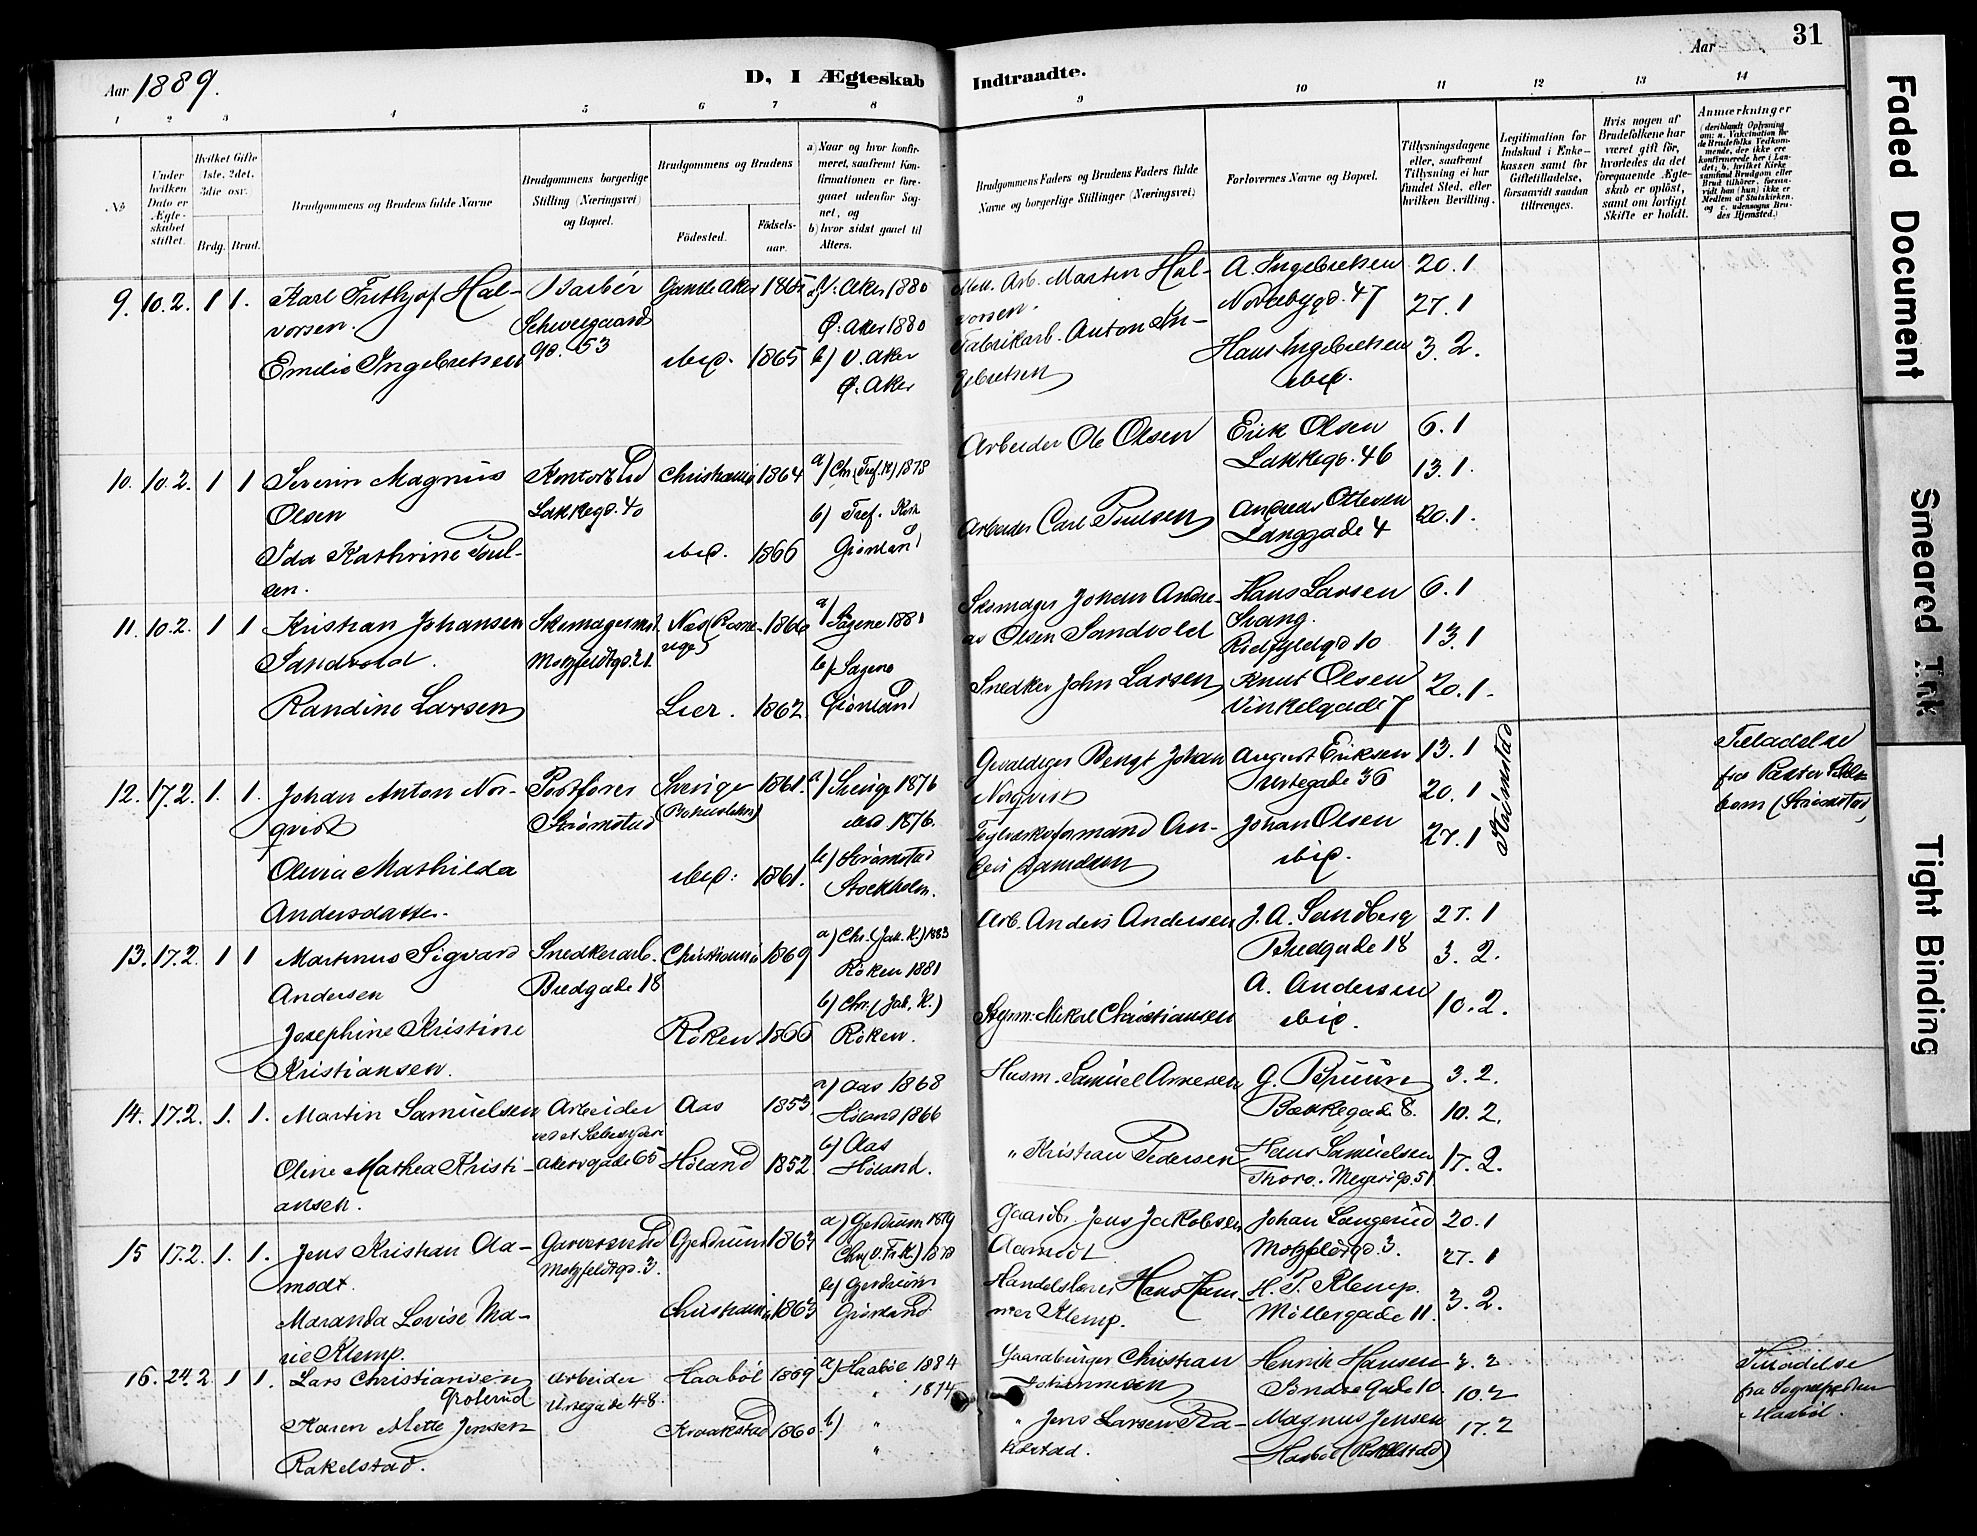 Aar 1889.
D, I Ægteskab
Indtraadte.
Aar
31
1 2 3 4 5 6 7 8
9 10 11 12 13 14
№
Under hvilken Dato er Ægteskabet stiftet.
Hvilket Gifte 1ste, 2det, 3die osv.
Brdg. Brud.
Brudgommens og Brudens fulde Navne
Brudgommens borgerlige Stilling (Næringsvei) og Bopæl.
Brudgommens og Brudens
Födested.
Födsels-aar.
a) Naar og hvor konfirmeret, saafremt Konfirmationen er foregaaet udenfor Sognet, og
b) hvor sidst gaaet til Alters.
Brudgommens Faders og Brudens Faders fulde Navne og borgerlige Stillinger (Næringsvei)
Forlovernes Navne og Bopæl.
Tillysningsdagene eller, saafremt Tillysning ei har fundet Sted, efter hvilken Bevilling.
Legitimation for Indskud i Enkekassen samt for Giftetilladelse, forsaavidt saadan tiltrænges.
Hvis nogen af Brudefolkene har været gift för, hvorledes da det foregaaende Ægteskab er oplöst, samt om lovligt Skifte er holdt.
Anmærkninger
9. 10.2. 1 1. Karl Frithjof Hal-
vorsen.
Emilie Ingebretsen
Barbér
Schweigaards
gd. 53
Gamle Aker 1865
ibid. 1865
a) V. Aker 1880
Ø. Aker 1880
b) V. Aker
Ø. Aker
Arb. Martin Hal-
vorsen.
Fabrikarb. Anton In-
gebretsen
A. Ingebretsen
Nordbygd. 47
Hans Ingebretsen
ibid.
20.1
27.1
3.2.
10. 10.2. 1 1 Severin Magnus
Olsen
Ida Kathrine Poul-
sen.
Kontorbud
Lakkegd. 40
Christiania 1864
ibid. 1866
a) Chr. (Tref. K) 1878
b) Tref. Kirk
Grønland
Arbeider Ole Olsen
Arbeider Carl Poulsen
Erik Olsen
Lakkegd. 46
Andreas Ottesen
Langgade 4
6.1
13.1.
20.1.
11. 10.2. 1 1 Kristian Johansen
Sandvold.
Randine Larsen
Skomagersvd.
Motzfeldtgd. 21.
Næs (Rome-
rige) 1860
Lier. 1862.
a) Sagene 1881
b) Sagene
Grønland
Skomager Johan Andre-
as Olsen Sandvold
Snedker John Larsen
Hans Larsen
Svang.
10
Knut Olsen
Vinkelgade 7
6.1
13.1
20.1.
12. 17.2. 1. 1. Johan Anton Nor-
qvist
Olivia Mathilda
Andersdatter.
Postfører
Strømstad
Sverige 1861.
ibid: 1861.
a) Sverige 1876
ibid 1876.
b) Strømstad
Stockholm.
Gevaldiger Bengt Johan
Norqvist
Teglværksformand An-
ders Danielsen
August Eriksen
Urtegade 36
Johan Olsen
ibid.
13.1
20.1
27.1
Strömstad
Tilladelse
fra Pastor
(Strömstad)
13. 17.2. 1 1 Martinus Sigvard
Andersen
Josephine Kristine
Kristiansen.
Snedkerarb.
Bredgade 18
Christiania 1869
Røken 1866
a) Chr. (Jak. K.) 1883
Røken 1881
b) Chr. (Jak. K.)
Røken.
Arb. Anders Andersen
Styrm. Mikal Christiansen
J. A. Sandberg
Bredgade 18
A. Andersen
ibid.
27.1
3.2.
10.2.
14. 17.2. 1. 1. Martin Samuelsen
Oline Mathea Kristi-
ansen.
Arbeider
Akersgade 65
Aas 1853
Høland 1852
a) Aas 1868
Høland 1866
b) Aas
Høland.
Husm. Samuel Arnesen
" Kristian Pedersen
G. Bruun
Bakkegade 8.
Hans Samuelsen
Thorv. Meyersgd. 51
3.2.
10.2.
17.2.
15 17.2. 1. 1. Jens Kristian Aa-
modt
Maranda Lovise Ma-
rie Klemp.
Garversvend
Motzfeldtgd. 3.
Gjerdrum 1864
Christiania 1863
a) Gjerdrum 1879
Chr. (V. Fr. K.) 1878
b) Gjerdrum
Grønland
Gaardbr. Jens Jakobsen
Aamodt
Handelsbører Hans Ham-
mer Klemp.
Johan Langerud
Motzfeldtgd. 3.
H. P. Klemp.
Møllergade 11.
20.1
27.1
3.2.
16. 24.2 1 1. Lars Christiansen
Groterud
Karen Mette Jensen
Rakelstad.
Arbeider
Urtegade 48.
Haabøl 1869
Kraakstad 1860
a) Haabøl 1884
" 1874
b) "
"
Gaardbruger Christian
Johannesen
" Jens Larsen Ra-
kelstad.
Henrik Hansen
Søndregade 10
Magnus Jensen
Haabøl (Rakelstad)
3.2
10.2
17.2
Tilladelse
fra Sognepresten
i Haabøl.
Faded Document
Smeared Ink
Tight Binding